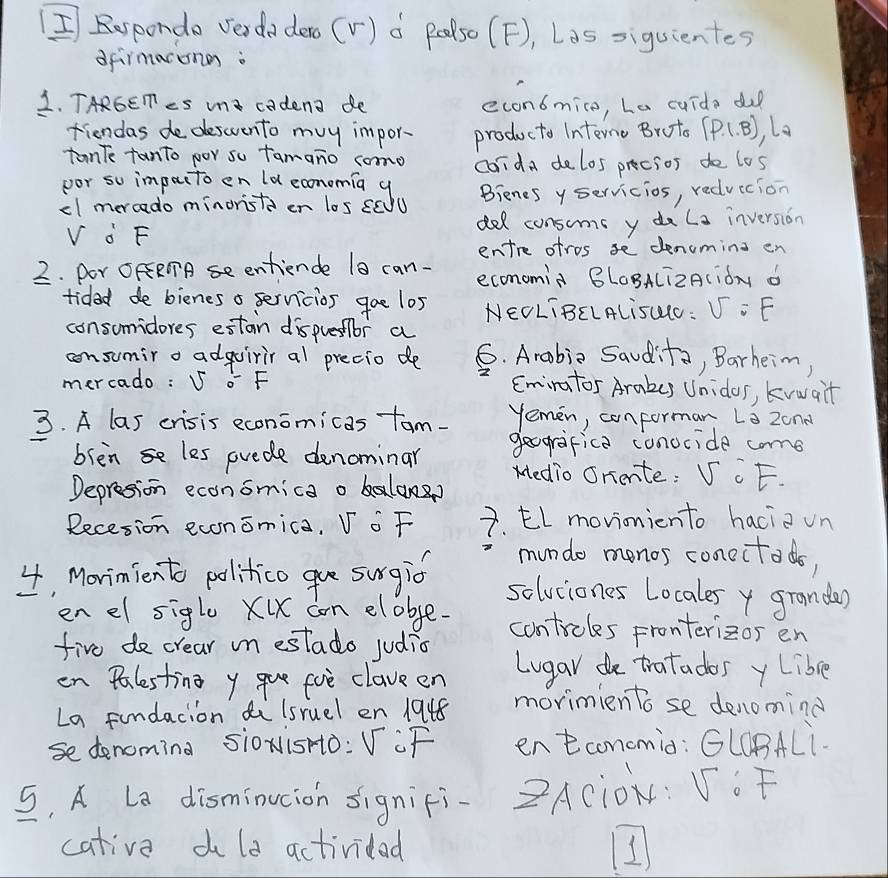 I Responda verdadero (V) ó Falso (F), Las siguientes
afirmaciones:
1. TARGET es una cadena de
tiendas de descuento muy impor-
tante tanto por su tamaño como
por su impacto en la economía y
el mercado minorista en los EEUU
V ó F
2. Por OFERTA se entiende la can-
tidad de bienes o servicios que los
consumidores están dispuestos a
consumir o adquirir al precio de
mercado: V ó F
3. A las crisis económicas tam-
bién se les puede denominar
Depresión económica o
Recesión económica. V ó F
4. Movimiento político que surgió
en el siglo XIX con el obje-
tivo de crear un estado judío
en Palestina y que fué clave en
La fundación de Israel en 1948
se denomina SIONISMO: V ó F
5. A La disminución signifi-
cativa de la actividad
económica, La caída del
producto Interno Bruto (P.I.B), La
caída de los precios de los
Bienes y servicios, reducción
del consumo y de La inversión
entre otros se denomina en
economía GLOBALIZACIÓN ó
NEOLIBELALISMO: V ó F
6. Arabia Saudita, Barheim,
Emiratos Arabes Unidos, Kuwait
Yemén, conforman La zona
geográfica conocida como
Medio Oriente: V ó F.
7. EL movimiento hacia un
mundo menos conectado,
soluciones Locales y grandes
controles fronterizos en
Lugar de tratados y Libre
movimiento se denomina
en Economía: GLOBALI-
ZACIÓN: V ó F
1